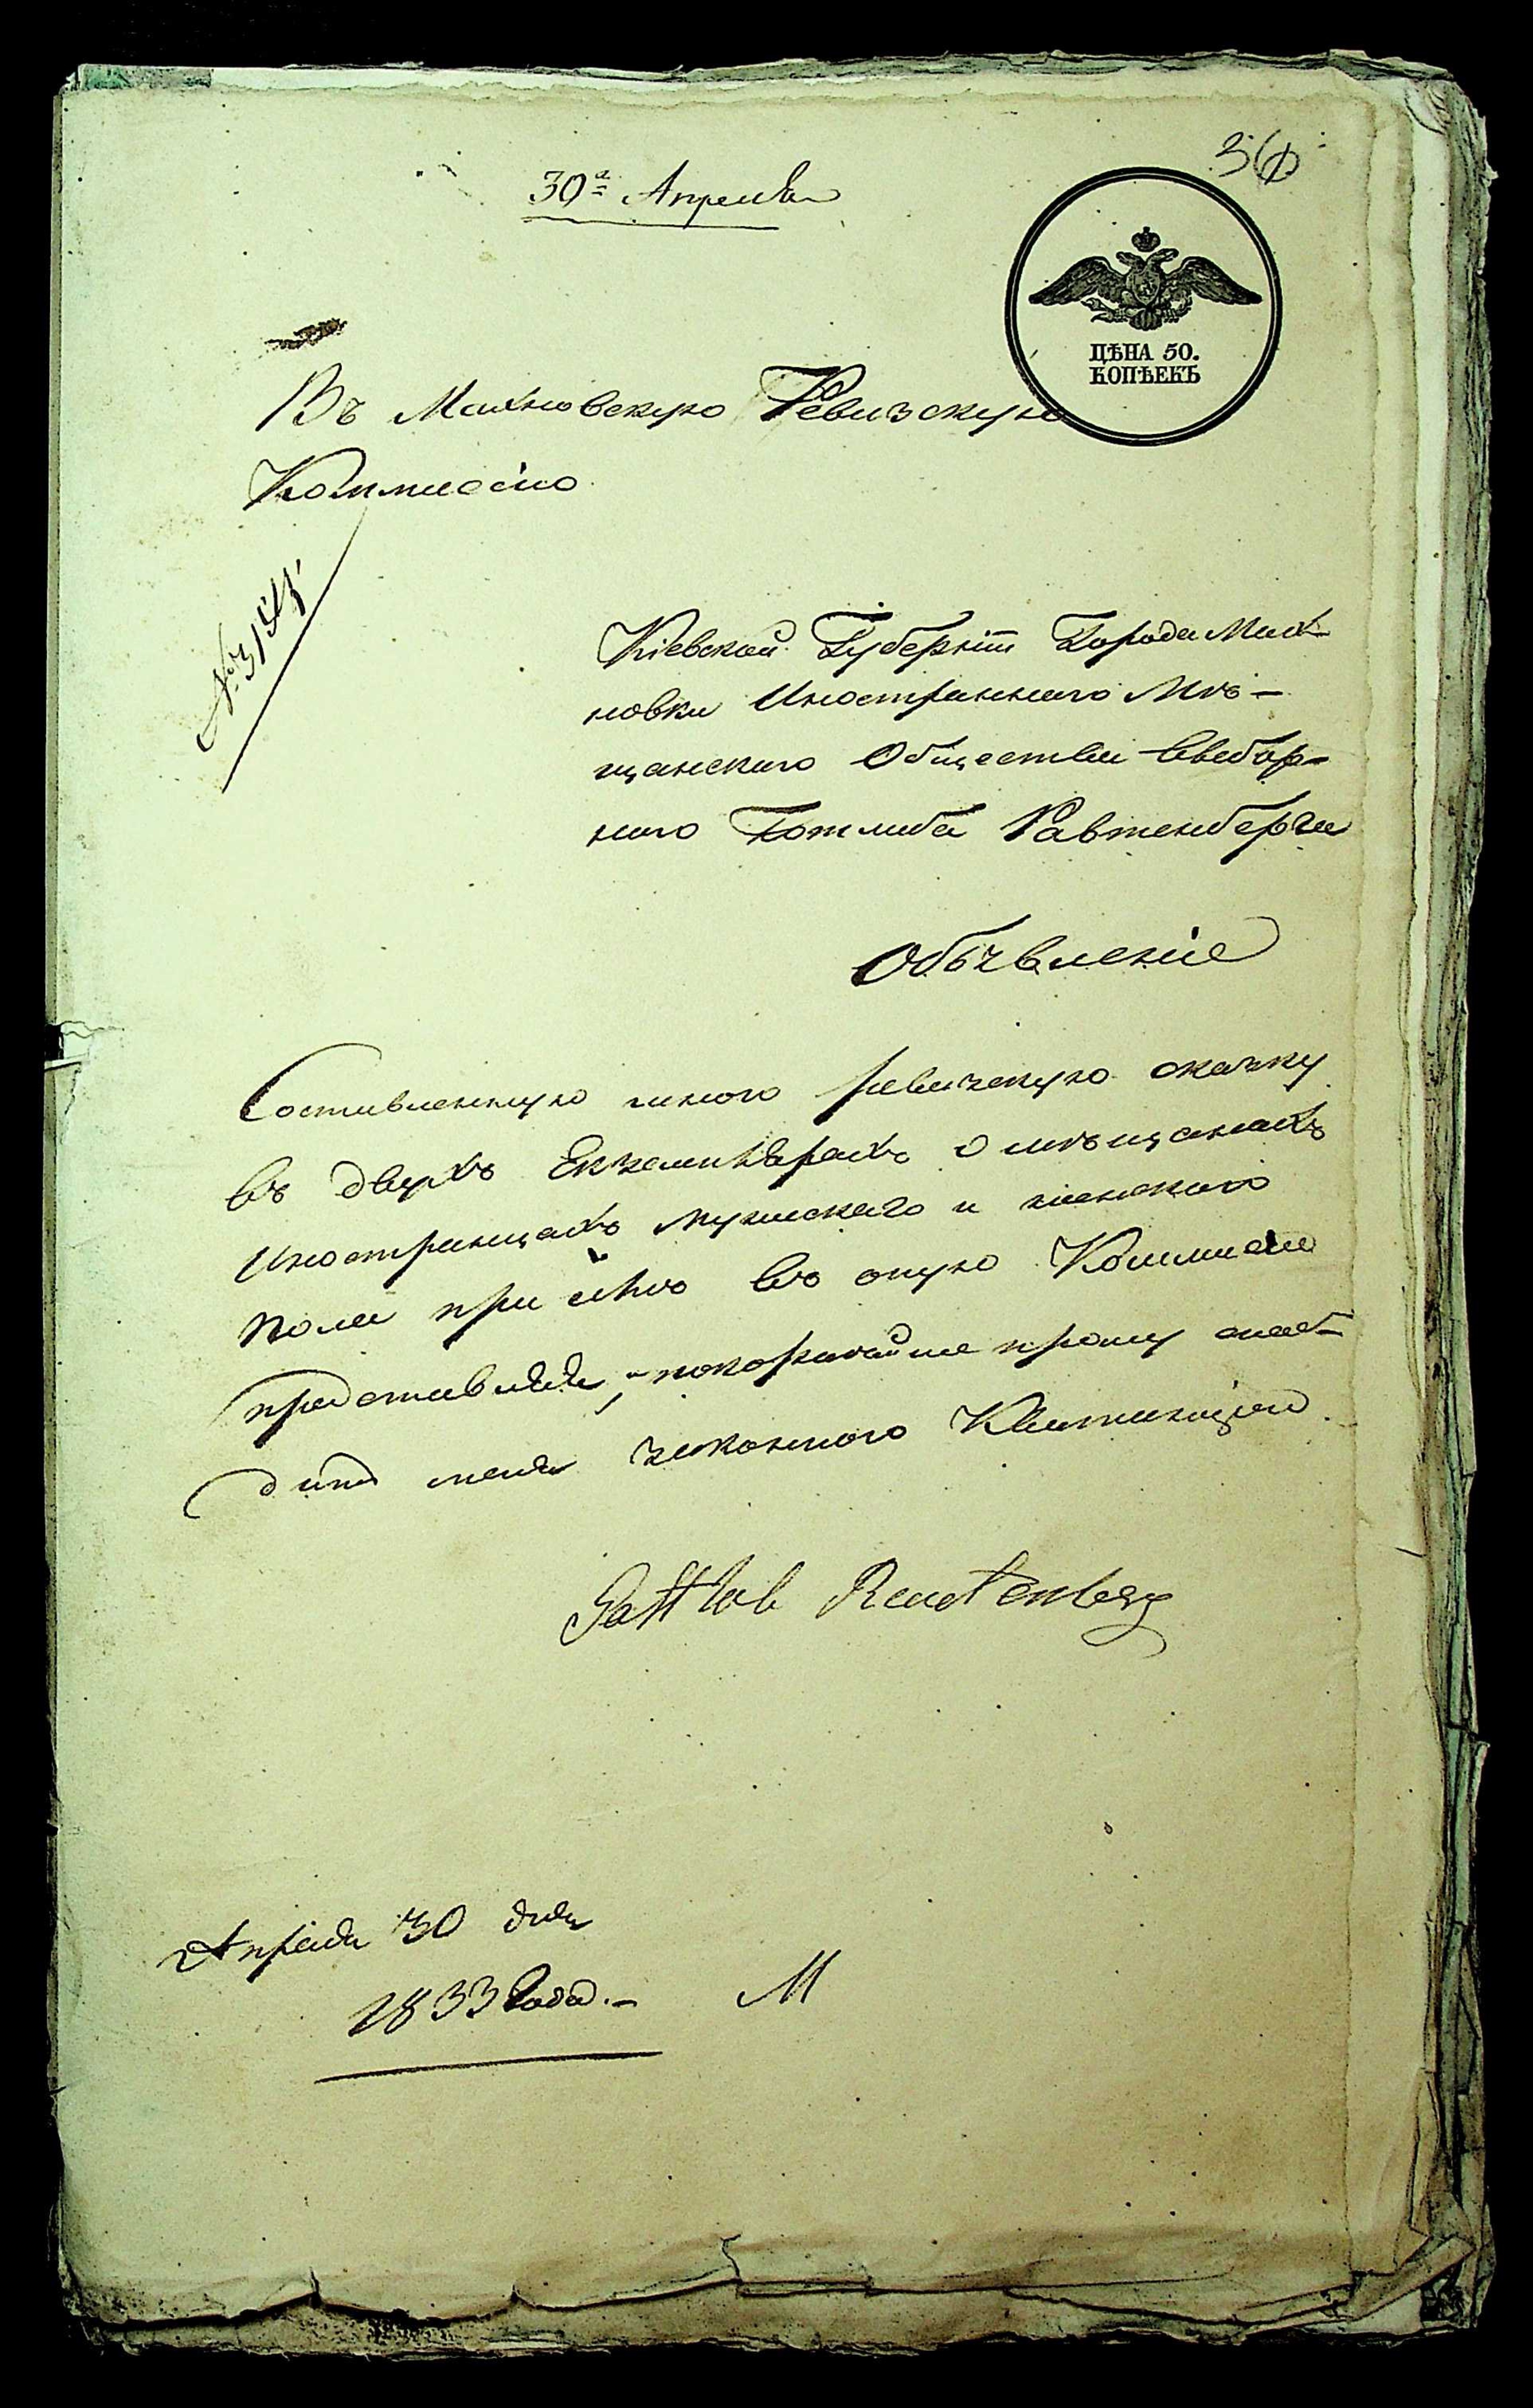 30ᵃ Апреля
ЦѢНА 50.
КОПѢЕКЪ
Въ Махновскую Ревизскую
Коммисію
Кіевской Губерніи Города Мах-
новки Иностраннаго Мѣ-
щанскаго Общества выбор-
наго Готлиба Равтенберга
Объявленіе
Составленную мною ревизскую сказку
въ двухъ Екземплярахъ о мѣщанахъ
Иностранцахъ мужескаго и женскаго
пола при семъ въ оную Коммисію
представляя, покорнейше прошу снаб-
дить меня законною Квитанціею
Gottlob Reutenberg
Апреля 30 дня
1833 Года.-
М